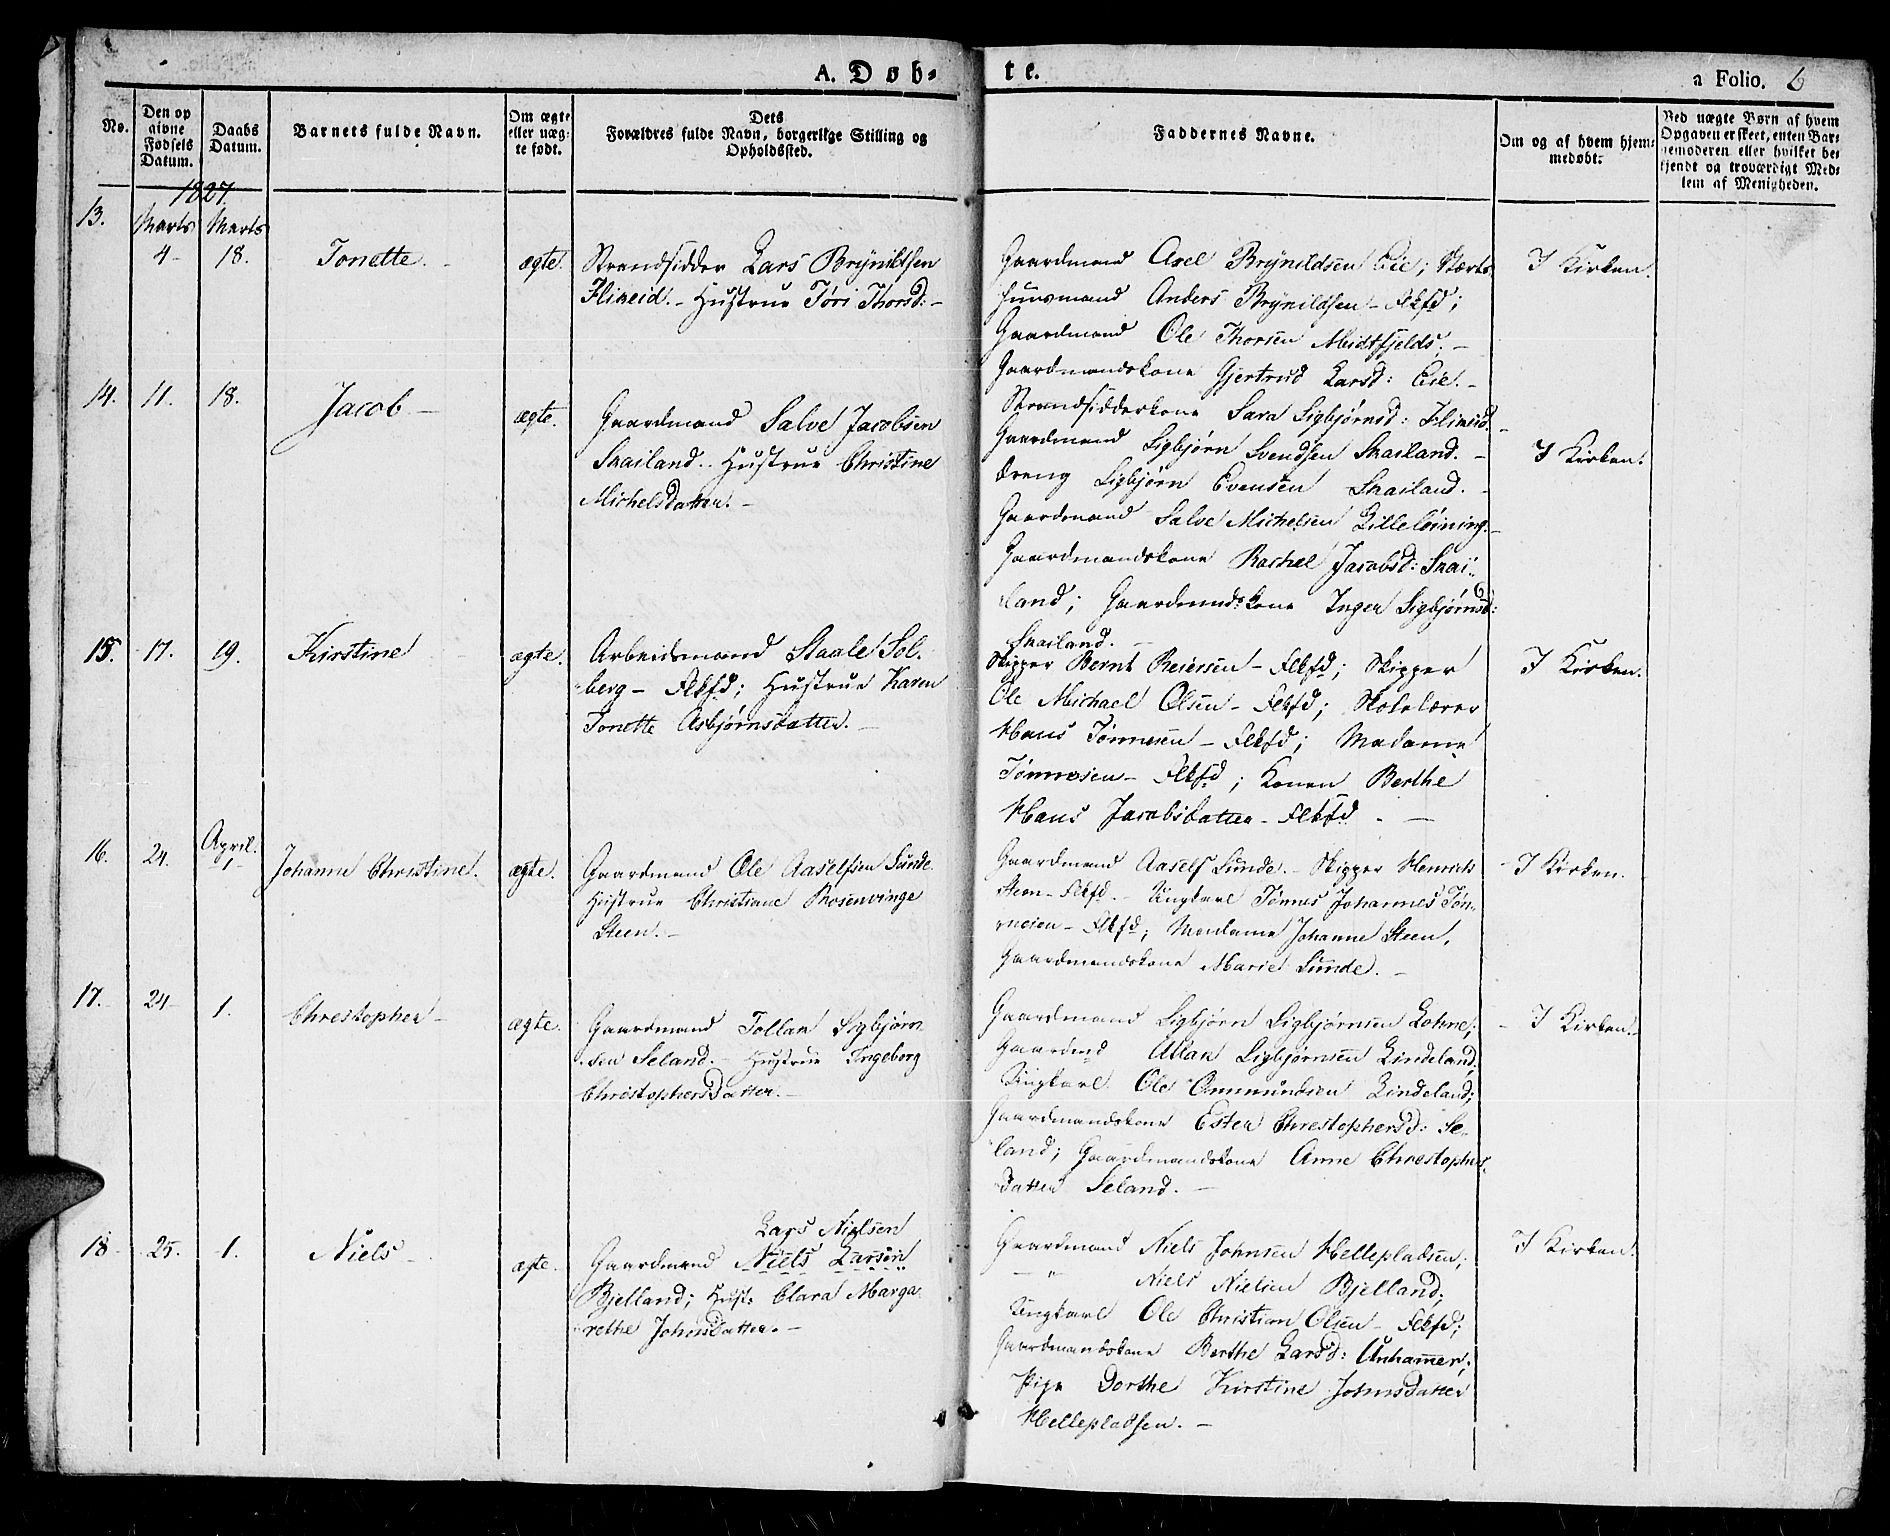 A. Døb-
te.
a Folio. 6
No.
Den op
givne
Fødsels
Datum.
Daabs
Datum.
Barnets fulde Navn.
Om ægte
eller uæg-
te født.
Dets
Forældres fulde Navn, borgerlige Stilling og
Opholdssted.
Faddernes Navne.
Om og af hvem hjem-
medøbt.
Ved uægte Børn af hvem
Opgaven er skeet, enten Bar-
nemoderen eller hvilket be-
kjendt og troværdigt Med-
lem af Menigheden.
1827.
13.
Marts
4-
Marts
18.
Tonette. -
ægte.
Strandsidder Lars Brynildsen
Flikeid. - Hustrue Töri Thorsd: -
Gaardmand Axel Brynildsen Eie;
Huusmand Anders Brynildsen - Flkfd;
Gaardmand Ole Thorsen Midtfjelds. -
Gaardmandskone Gjertrud Larsd: Eie. -
Strandsidderkone Sara Sigbjørnsd: Flikeid. -
I Kirken.
14.
11.
18.
Jacob. -
ægte.
Gaardmand Salve Jacobsen
Skailand. Hustrue Christine
Michelsdatter. -
Gaardmand Sigbjørn Svendsen Skailand. -
Dreng Sigbjørn Evensen Skailand. -
Gaardmand Salve Michelsen Lilleløining. -
Gaardmandskone Rachel Jacobsd: Skai-
land; Gaardmandskone Inger Sigbjørnsd:
Skailand.
I Kirken.
15.
17.
19.
Kirstine
ægte.
Arbeidsmand Staale Sol-
berg - Flkfd; Hustrue Karen
Tonette Asbjørnsdatter. -
Skipper Bernt Reiersen - Flkfd; Skipper
Ole Michael Olsen - Flkfd; Skolelærer
Hans Tönnesen - Flkfd; Madame
Tönnesen - Flkfd; Konen Berthe
Hans Jacobsdatter - Flkfd. -
I Kirken.
16.
24.
April.
1.
Johanne Christine.
ægte.
Gaardmand Ole Aaselfsen Lunde.
Hustrue Christiane Rosenvinge
Steen. -
Gaardmand Aaself Lunde. - Skipper Henrich
Steen - Flkfd. - Ungkarl Tönnes Johannes Tön-
nesen - Flkfd; Madame Johanne Steen,
Gaardmandskone Marie Lunde. -
- I Kirken.
17.
24
1.
Chrestopher -
ægte.
Gaardmand Tollak Sigbjørn-
sen Seland. - Hustrue Ingeborg
Chrestophersdatter. -
Gaardmand Sigbjørn Sigbjørnsen Lohne;
Gaardmd Atlak Sigbjørnsen Lindeland;
Ungkarl Ole Ommundsen Lindeland;
Gaardmandskone Ester Chrestophersd: Se-
land; Gaardmandskone Anne Chrestophers-
datter Seland. -
- I Kirken. -
18
25.
1.
Niels -
ægte.
Lars Nielsen
Gaardmand Niels Larsen
Bjelland; Hust: Clara Marga-
rethe Johnsdatter. -
Gaardmand Niels Johnsen Hellepladsen;
- " - Niels Nielsen Bjelland;
Ungkarl Ole Christian Olsen - Flkfd;
Gaardmandskone Berthe Larsd: Unhammer.
Pige Dorthe Kirstine Johnsdatter
Hellepladsen. -
I Kirken.